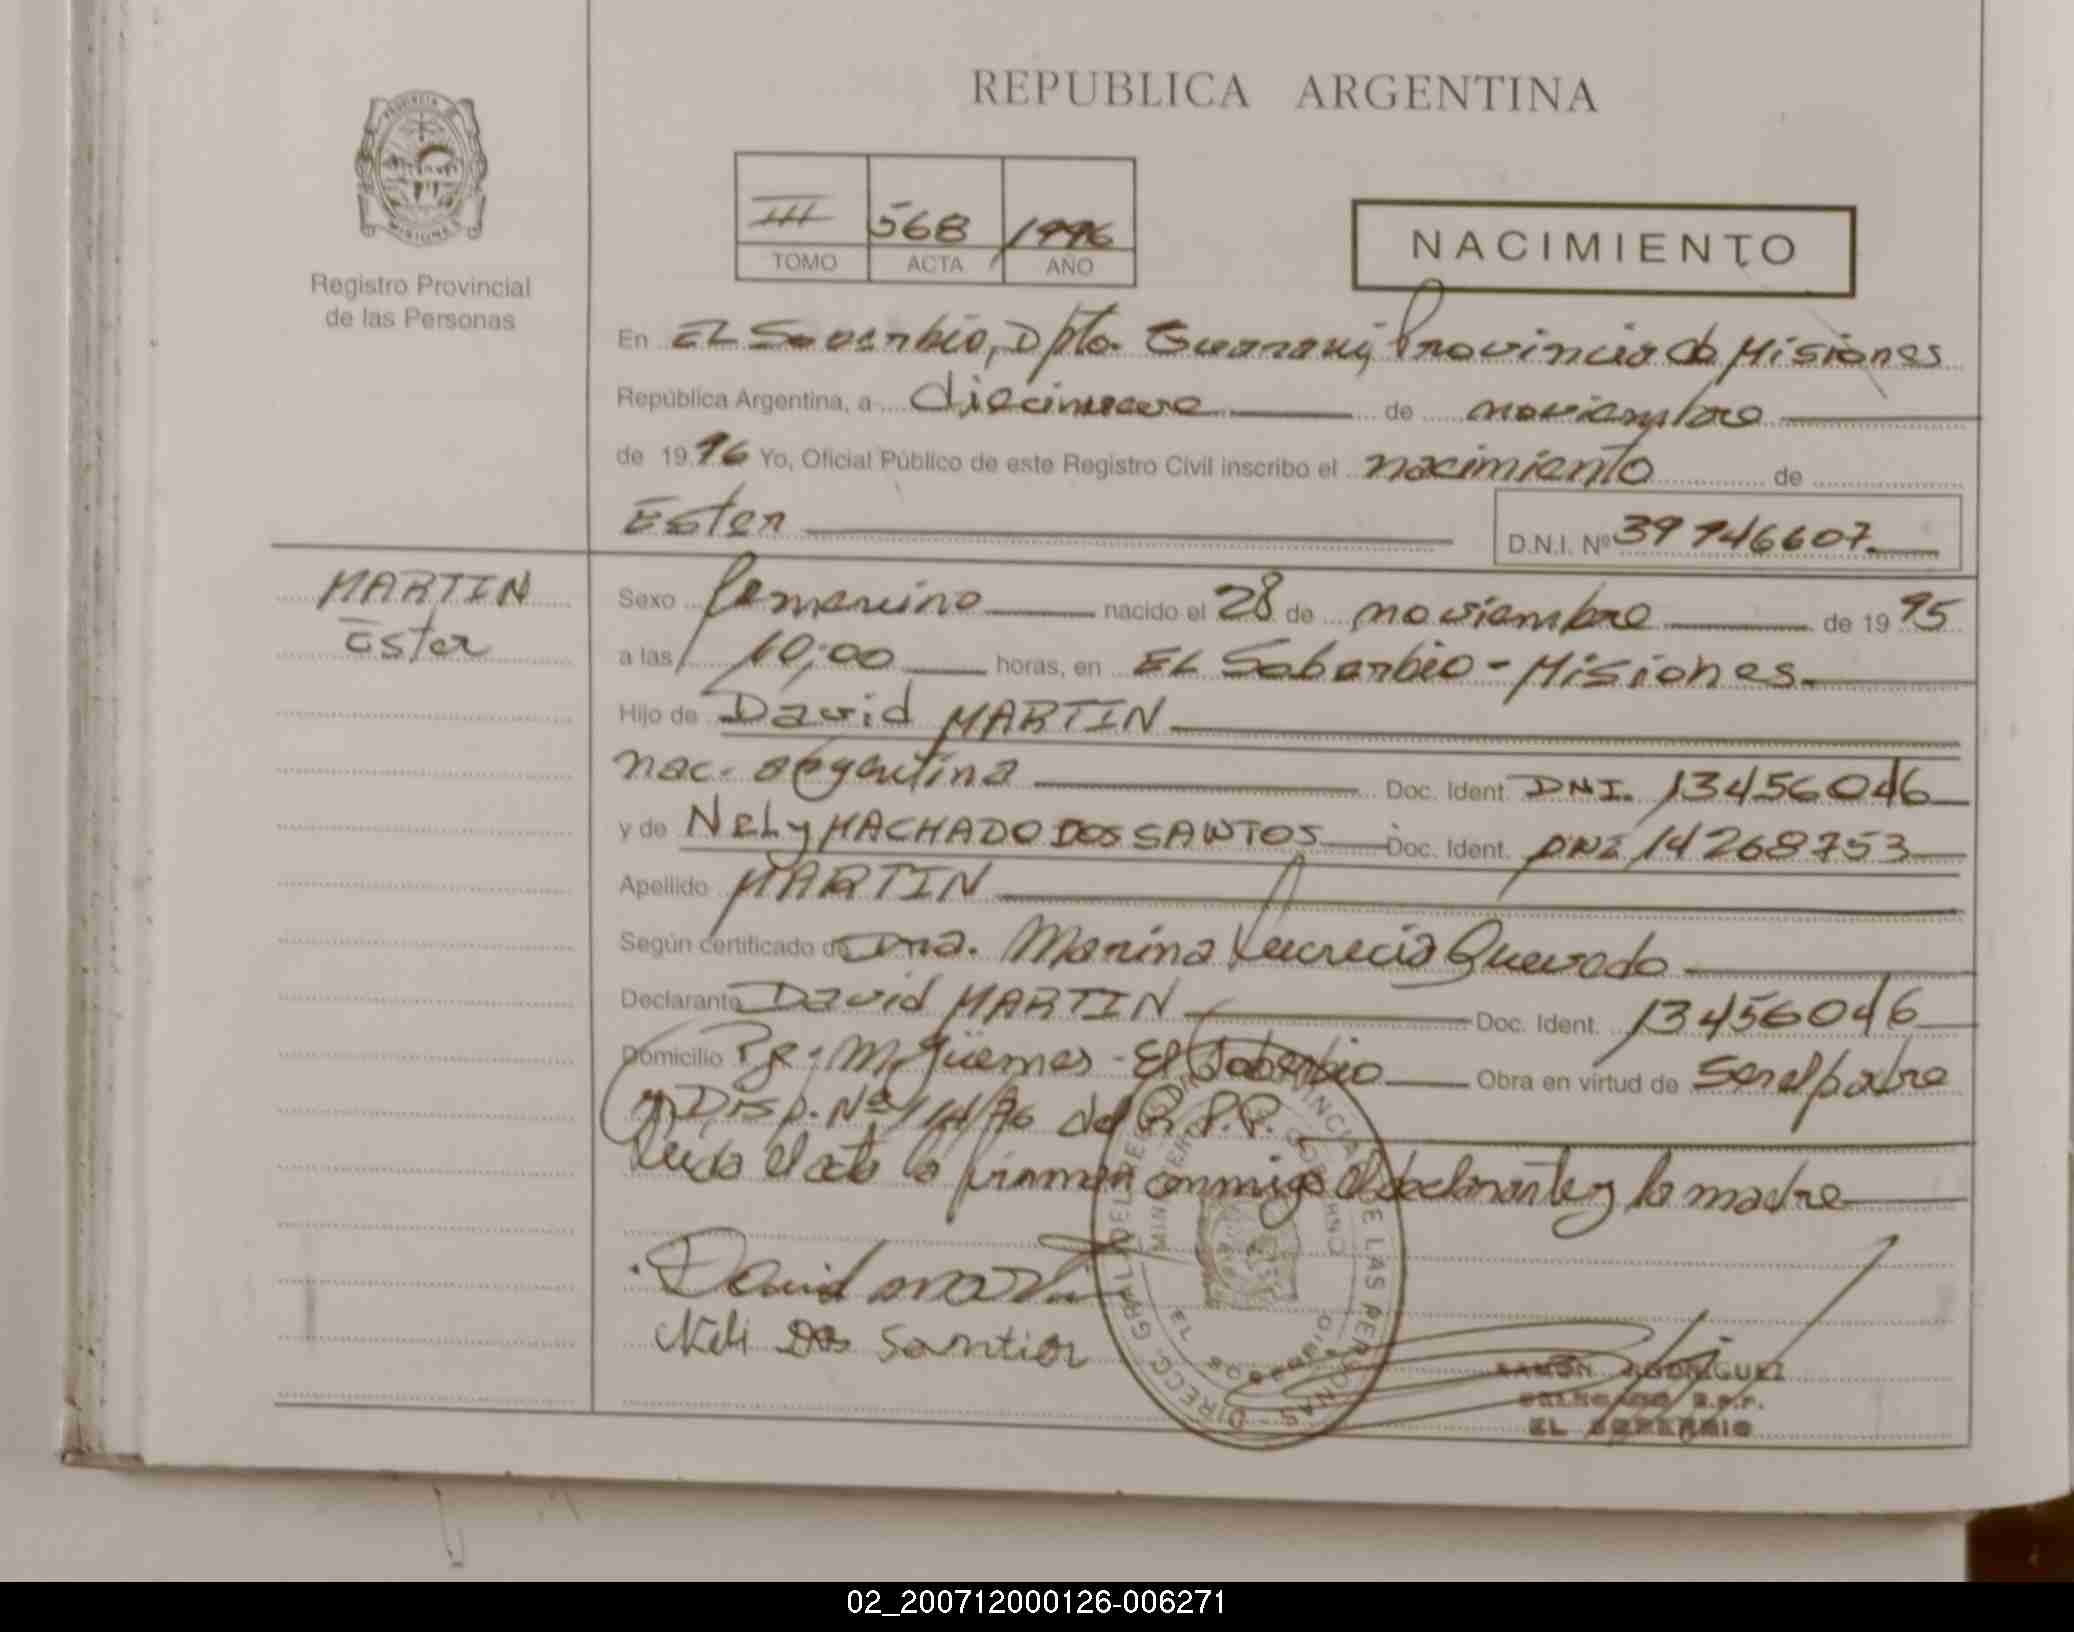 REPUBLICA ARGENTINA
PROVINCIA
MISIONES
Registro Provincial
de las Personas
III 568 1996
TOMO ACTA AÑO
NACIMIENTO
En EL Soberbio, Dpto. Guaraní, Provincia de Misiones
República Argentina, a diecinueve de noviembre
de 1996 Yo, Oficial Público de este Registro Civil inscribo el nacimiento de
Ester D.N.I. Nº 39946607
MARTIN
Ester
Sexo femenino nacido el 28 de noviembre de 1995
a las 10;00 horas, en EL Soberbio - Misiones.
Hijo de David MARTIN
nac. argentina Doc. Ident. DNI. 13456046
y de NELy MACHADO DOS SANTOS Doc. Ident. DNI 14268753
Apellido MARTIN
Según certificado de Dra. Marina Lucrecia Quevedo
Declarante David MARTIN Doc. Ident. 13456046
Domicilio Pje. M. Güemes - El Soberbio Obra en virtud de ser el padre
y Disp. Nº 114/96 del R.P.P.
Leida el acta la firman conmigo el declarante y la madre
David Martin
Neli Dos Santior
DIRECC. GRAL. DEL REG. PROVINCIAL DE LAS PERSONAS
EL SOBERBIO
RAMON RODRIGUEZ
DELEGADO R.P.P.
EL SOBERBIO
02_200712000126-006271